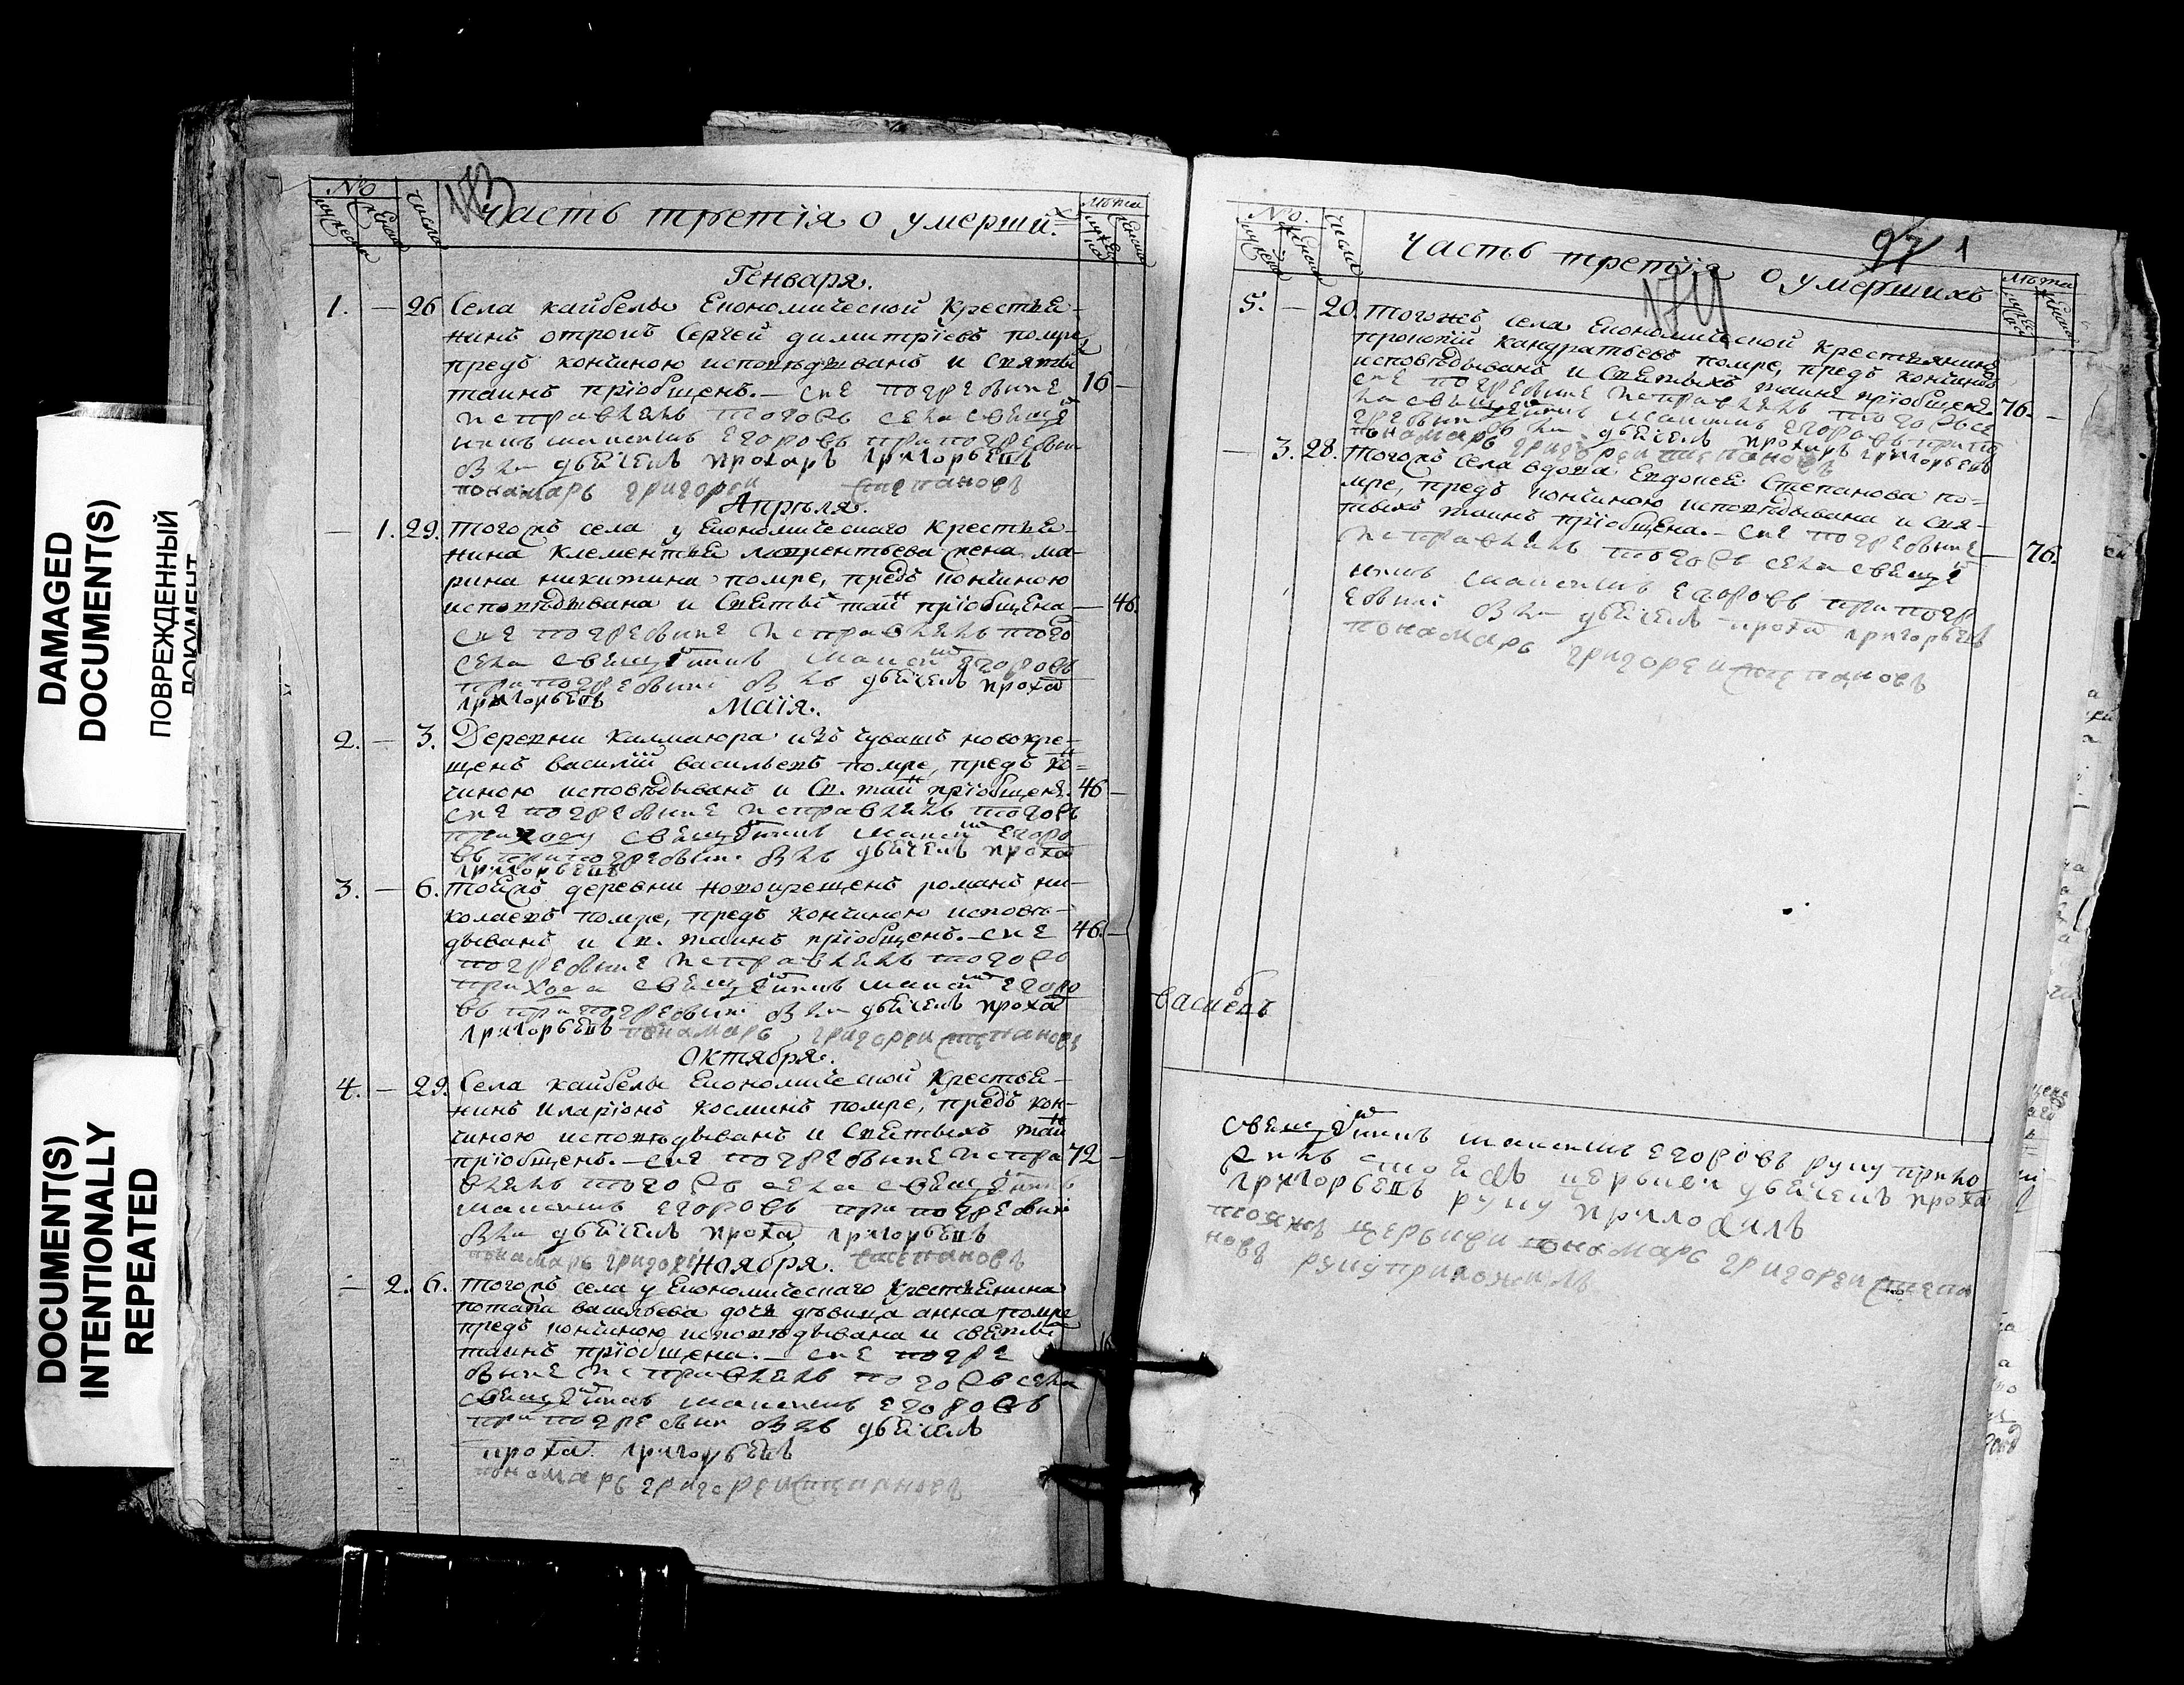 DAMAGED
DOCUMENT(S)
ПОВРЕЖДЕННЫЙ
ДОКУМЕНТ
DOCUMENT(S)
INTENTIONALLY
REPEATED
№
число
173
Часть третїя о умерши х
лѣта
Генваря.
1. — 26 Села кайбелы Економической крестьѧ-
нинъ отрокъ Сергей димитрїевъ помре
предъ кончиною исповѣдыванъ и Святы
таинъ прїобщенъ. — сие погребение 16 —
исправлялъ тогожъ села свеще
нникъ максимъ егоровъ при погребени
былъ дьячекъ прохоръ григорьевъ
понамарь григореи степановъ
Апрѣля.
— 1. 29. тогожъ села у Економическаго крестьѧ-
нина клементья лаврентьева жена ма-
рина никитина помре, предъ кончиною
исповѣдывана и Святы таин прїобщена — 46.
сие погребение исправлялъ того
села свещенникъ максим егоровъ
при погребении былъ дьячекъ проха
григорьевъ
Маїя.
2. — 3. Деревни калмаюра изъ чувашъ новокре-
щенъ василїй васильевъ помре, предъ ко-
нчиною исповѣдыванъ и Св. таин прїобщенъ. 46 —
сие погребение исправлялъ тогожъ
приходу свещенникъ максим егоро
въ при погребени былъ дьячекъ проха
григорьевъ
3. — 6. тоежъ деревни новокрещенъ романъ ни-
колаевъ помре, предъ кончиною исповѣ-
дыванъ и Св. таинъ прїобщенъ. — сие 46. —
погребение исправлялъ тогожъ
прихода свещенникъ максим егоро
въ при погребении былъ дьячекъ проха
григорьевъ понамарь григореи степановъ
Октября.
4. — 29. Села кайбелы Економической крестьѧ-
нинъ иларїонъ косминъ помре, предъ кон-
чиною исповѣдыванъ и Святыхъ таин
прїобщенъ. — сие погребение испра 72 —
влялъ тогожъ села свещенникъ
максимъ егоровъ при погребении
былъ дьячекъ проха григорьевъ
понамарь григореи степановъ
Ноября.
— 2. 6. тогожъ села у Економическаго крестьѧнина
потапа васильева дочь дѣвица анна помре
предъ кончиною исповѣдывана и святы
таинъ прїобщена. — сие погре
бение исправлялъ тогожъ села
свещенникъ максимъ егоровъ
при погребении былъ дьячекъ
проха григорьевъ
понамарь григореи степановъ
№
число
97 1
174
Часть третїя о умершихъ
лѣта
5. — 20. тогожъ села Економической крестьянинъ
прокопїй кандратьевъ помре, предъ кончиною
исповѣдыванъ и Святыхъ таинъ прїобщенъ.
сие погребение исправлялъ тогожъ се 76. —
ла свещенникъ максимъ егоровъ при по
гребении былъ дьячекъ прохоръ григорьевъ
понамарь григореи степановъ
— 3. 28. тогожъ села вдова Евдокея Степанова по-
мре, предъ кончиною исповѣдывана и Свя-
тыхъ таинъ прїобщена. — сие погребение
исправлялъ тогожъ села свеще — 76.
нникъ максимъ егоровъ при погр
ебении былъ дьячекъ проха григорьевъ
понамарь григореи степановъ
свещенникъ максимъ егоровъ руку прило
жилъ тоежъ церькви дьячекъ проха
григорьевъ руку приложилъ
тояжъ церькви понамарь григореи степа
новъ руку приложилъ